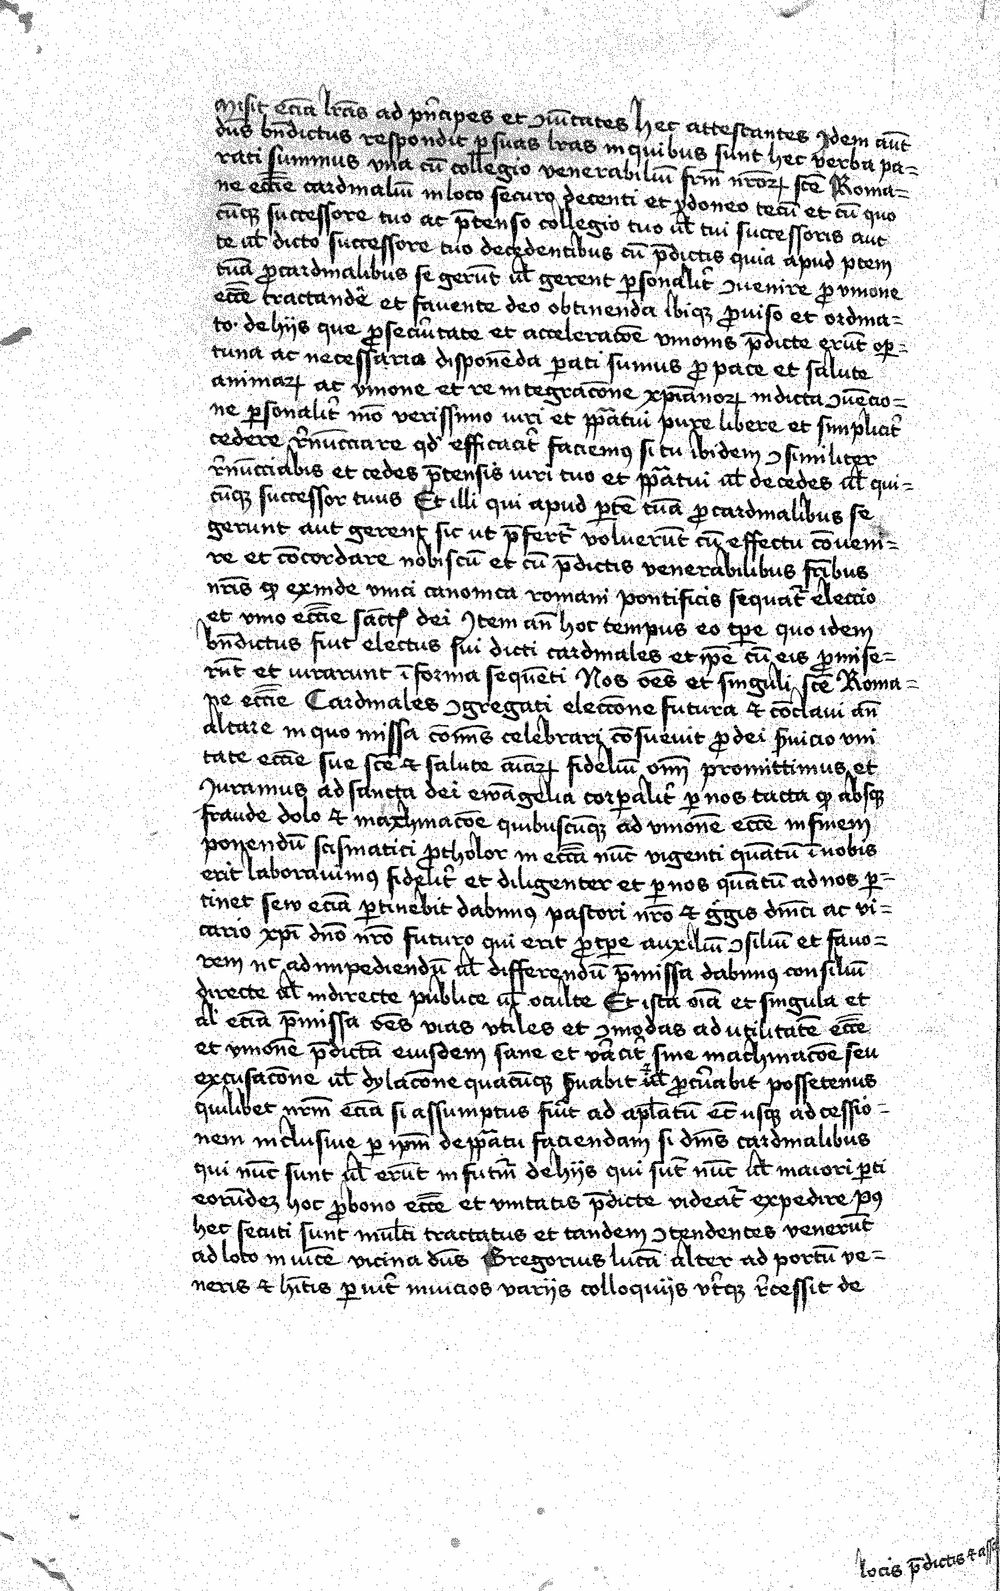 Misit eciā lrās ad pn̄cipes et ꝯu̅itates hec attestantes Idem aut̄
dūs bn̄dictus respondit ꝑ suas lras in quibus sunt hec v̄erba pa=
rati sumus vna cū collegio venerabiliū frm̄ nr̄oꝝ scē Roma=
ne ecc̄ie cardinaliū in loco securo decenti et ydoneo tecū et cū quo
cūqꝫ successore tuo ac p̄tenso collegio tuo ul̄ tui successoris aut
te ul̄ dicto successore tuo decedentibus cū p̄dictis quia apud ptem
tuā ꝓcardinalibus se gerūt ul̄ gerent ꝑsonalit̄ ꝯuenire ꝓ vnione
ecc̄e tractandē et fauente deo obtinenda ibiqꝫ ꝓuiso et ordina=
to· de hijs que ꝓ secūtate et acceleracōe vnionis p̄dicte erūt oꝑ=
tuna ac necessaria disponēda parati sumus ꝓ pace et salute
animaꝝ ac vnione et reintegracōne xp̄ianoꝝ in dicta ꝯuēcio=
ne ꝑsonalit̄ īmo verissimo iuri et pp̄atui pure libere et simplicit̄
cedere r̄nūcciare qd̄ efficacit̄ faciemꝰ si tu ibidem ꝯsimiliter
r̄nūcciabis et cedes p̄tensis iuri tuo et pp̄atui ul̄ decedes ul̄ qui=
cūqꝫ successor tuus Et illi qui apud ꝑtē tuā ꝓcardinalibus se
gerunt aut gerent sic ut p̄fert̄ voluerūt cū effectu cōueni=
re et cōcordare nobiscū et cū p̄dictis venerabilibus fr̄ibus
nr̄is qꝫ exinde vnici canonica romani pontificis sequat̄ eleccio
et vnio ecc̄ie sāctē dei Item an̄ hoc tempus eo tꝑe quo idem
bn̄dictus fuit electus sui dicti cardinales et ip̄e cū eis ꝓmise=
rūt et iurarunt ī forma sequēti Nos oēs et singuli scē Roma=
ne ecc̄ie Cardinales ꝯgregati eleccōne futura & cōclaui an̄
altare in quo missa cōmīs celebrari cōsueuit ꝓ dei s̄uicio vni
tate ecc̄ie sue scē & salute aīaꝝ fideliū oīm promittimus et
Iuramus ad sancta dei ewāgelia corꝑalit̄ ꝑ nos tacta qꝫ absqꝫ
fraude dolo & machinacōe quibuscūqꝫ ad vnionē ecc̄e in finem
ponendū scismatici ꝓtholor in ecc̄ia nūc vigenti quātū ī nobis
erit laborauimꝰ fidelit̄ et diligenter et ꝑ nos quātū ad nos ꝑ=
tinet sew eciā ꝑtinebit dabimꝰ pastori nr̄o & ḡgis dn̄ici ac vi=
cario xp̄i dn̄o nr̄o futuro qui erit ꝓ tꝑe auxiliū ꝯsiliū et fauo=
rem nc̄ ad inpediendū ul̄ differendū p̄missa dabimꝰ consiliū
directe ul̄ indirecte publice ul̄ oculte Et ista oīa et singula et
al̄ eciā p̄missa oēs vias vtiles et ꝯmodas ad utilitatē ecc̄e
et vnionē p̄dictā eiusdem sane et v̄acit̄ sine machinacōe seu
excusacōne ul̄ dylacōne quacūqꝫ s̄uabit & ul̄ ꝓcūabit possetenus
quilibet nr̄m eciā si assumptus fūit ad apl̄atū ec̄ usqꝫ ad cessio=
nem inclusiue ꝑ ip̄m de pp̄atu faciendam si dn̄is cardinalibus
qui nūc sunt ul̄ erūt in futur̄ de hijs qui sūt nūc ul̄ maiori ꝑti
eorūdeꝫ hoc ꝓ bono ecc̄e et vnitatis p̄dicte videat̄ expedire pꝰ
hec secuti sunt mul̄ti tractatus et tandem ꝯtendentes venerūt
ad loco in uicē vicina dūs Gregorius lucā alter ad portū ve=
neris & hīt̄is ꝑ uit̄ inuicios varijs colloquijs vt̄qꝫ r̄cessit de
locis p̄dictis &